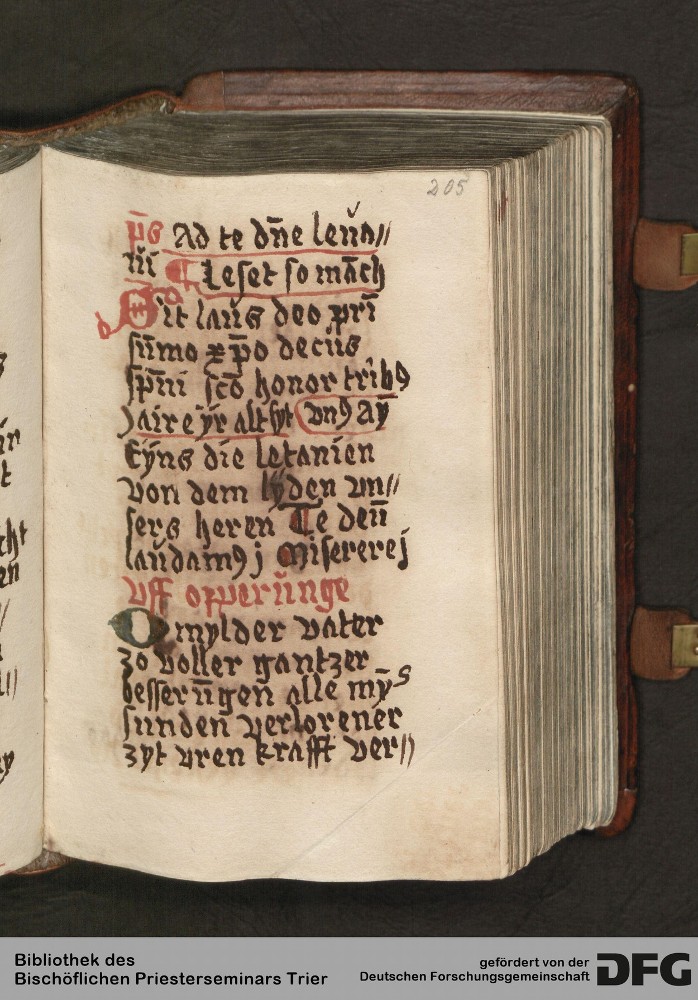 205
p̄s Ad te dn̄e leua̅//
ui ¶ Leset so ma̅ch
Sit laus deo pri̅
su̅mo xp̄o decus
sp̅ni sc̅o honor tribꝯ
jair eyr alt syt vnꝯ Ay
Eyns die letanien
von dem lyden vn//
sers heren Te deu̅
laudamꝯ j Miserere j
Vff opperunge
O mylder vater
zo voller gantzer
besserungen alle my̅s
sunden verlorener
zyt vren krafft ver//
Bibliothek des
Bischöflichen Priesterseminars Trier
gefördert von der
Deutschen Forschungsgemeinschaft
DFG